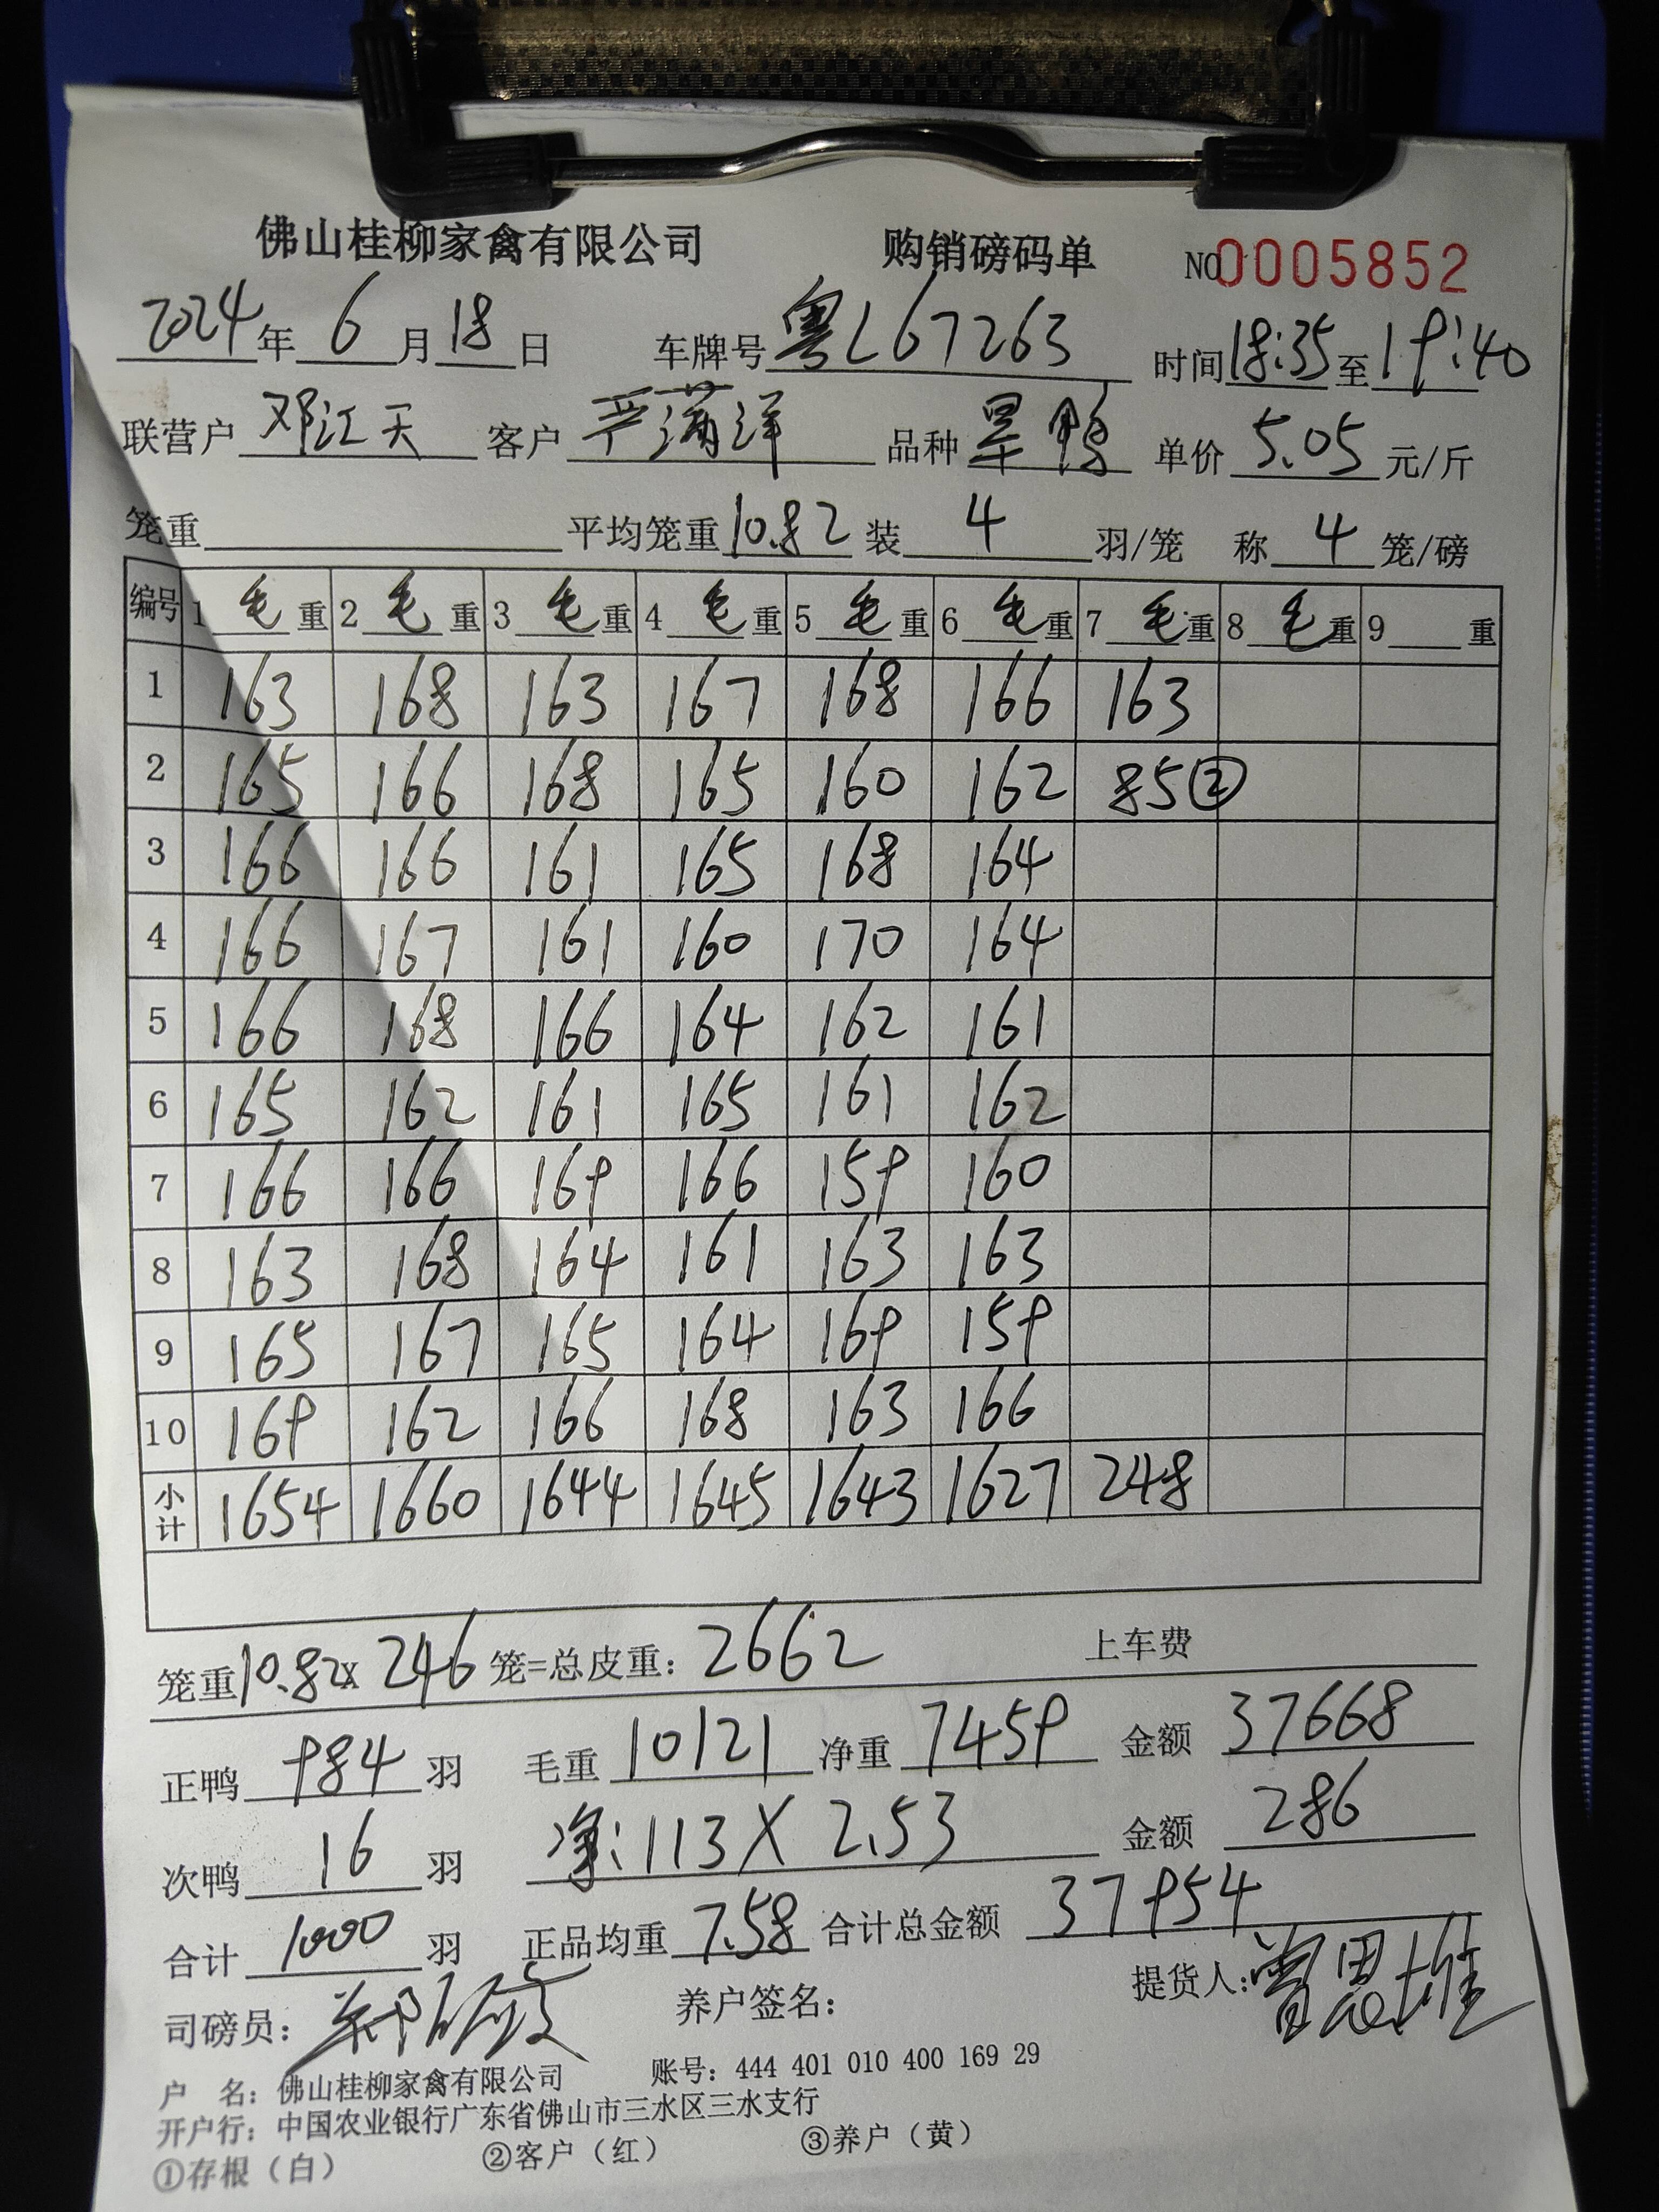 佛山桂柳家禽有限公司 购销磅码单 NO0005852
2024年 6月18日 车牌号粤L67263 时间18:35至19:40
联营户 邓江天 客户 严蒲洋 品种 旱鸭 单价 5.05 元/斤
笼重 平均笼重10.82 装 4 羽/笼 称 4 笼/磅
编号 1 毛 重 2 毛 重 3 毛 重 4 毛 重 5 毛 重 6 毛 重 7 毛 重 8 毛 重 9 重
1 163 168 163 167 168 166 163
2 165 166 168 165 160 162 85②
3 166 166 161 165 168 164
4 166 167 161 160 170 164
5 166 168 166 164 162 161
6 165 162 161 165 161 162
7 166 166 169 166 159 160
8 163 168 164 161 163 163
9 165 167 165 164 169 159
10 169 162 166 168 163 166
小计 1654 1660 1644 1645 1643 1627 248
笼重10.82x 246 笼=总皮重: 2662 上车费
正鸭 984 羽 毛重 10121 净重 7459 金额 37668
次鸭 16 羽 净:113X 2.53 金额 286
合计 1000 羽 正品均重 7.58 合计总金额 37954
司磅员: 养户签名: 提货人:曾思雄
户 名: 佛山桂柳家禽有限公司 账号: 444 401 010 400 169 29
开户行: 中国农业银行广东省佛山市三水区三水支行
①存根（白） ②客户（红） ③养户（黄）